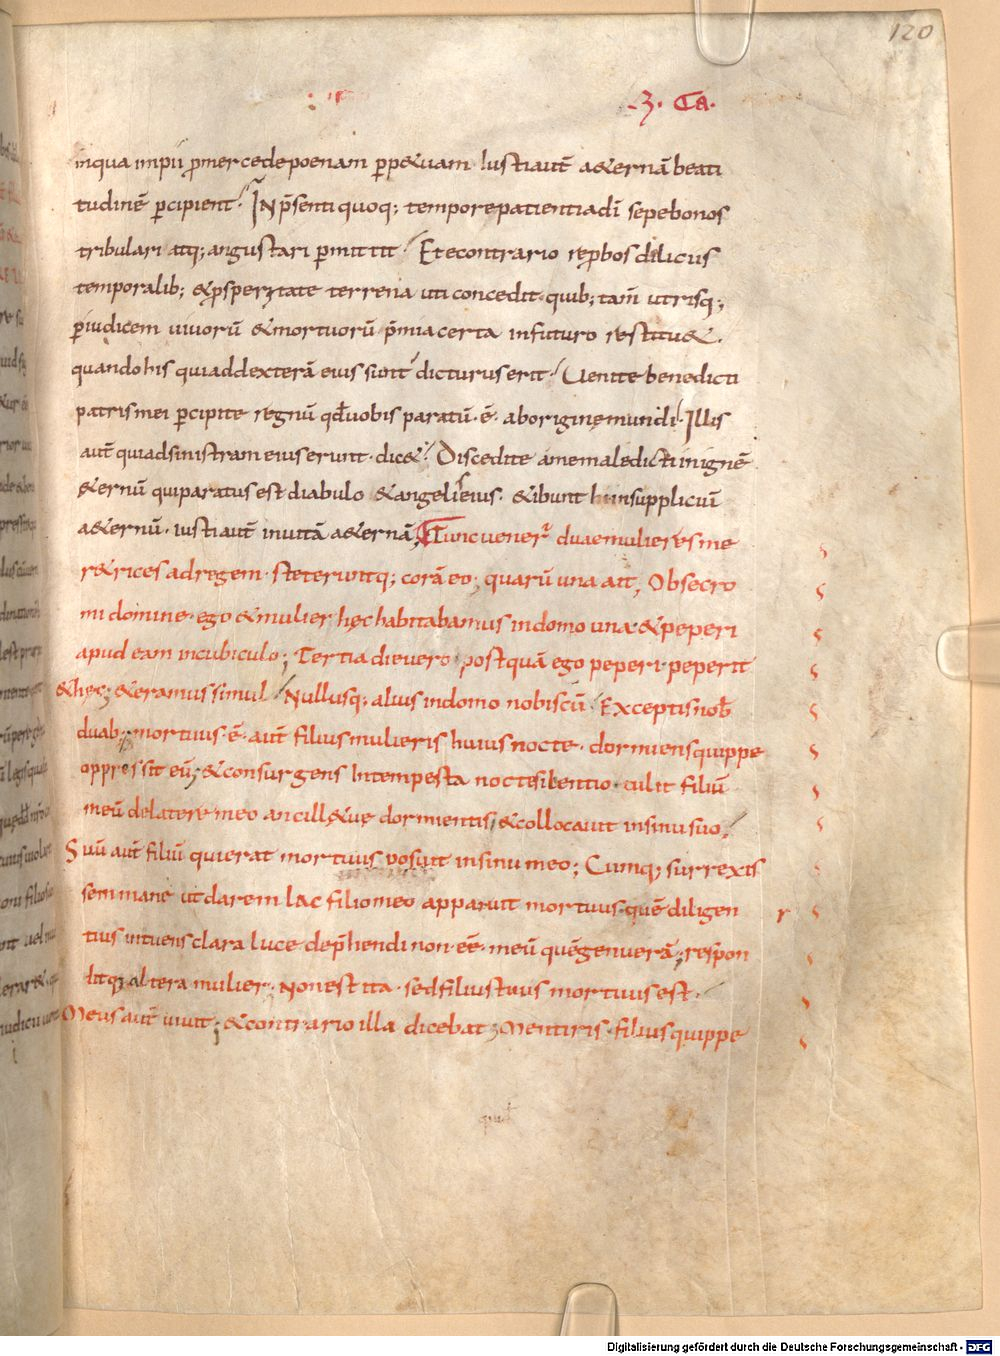 120
.3. Ca.
inqua impii ꝓmercedepoenam ꝑpꝫ&uam. Iustiaut̄ a&ernā beati
tudinē ꝑcipient. IN p̄senti quoq; temporepatientiadī sepebonos
tribulari atq; angustari ꝑmittit. Etecontrario reꝓbos dilicus
temporalib; &ꝓsperitate terrena uti concedit. quib; tam̄ utrisq;
ꝑiudicem uiuorū &mortuorū p̄mia certa infuturo restitu&.
quandohis quiaddexterā eius sunt dicturus erit. Uenite benedicti
patris mei ꝑcipite regnū qđuobis paratū. ē. aborigine mundi. Illis
aut̄ quiadsinistram eius erunt. dic&. Discedite ame maledicti inignē
&ernū qui paratus est diabulo &angelis eius. &ibunt hi insupplicuī
a&ernū. iusti aut̄ inuitā a&ernā; Tunc uener̄ duae mulieres me
r&rices adregem. steteruntq; corā eo. quarū una ait, Obsecro
mi domine. ego &mulier hęc habitabamus indomo una. &peperi
apud eam incubiculo; Tertia die uero postquā ego peperi. peperit
&hęc; &eramus simul. Nullusq; alius indomo nobiscū. Exceptis nob̄
duab; mortuus. ē. aut̄ filius mulieris huius nocte. dormiens quippe
oppressit eū, &consurgens Intempesta nocte silentio. tulit filiū
meū delatere meo ancillęque dormientis, &collocauit insinu suo,
Suū aut̄ filiū qui erat mortuus posuit insinu meo; Cumq; surrexis
sem mane ut darem lac filio meo apparuit mortuus. quē diligen
r
tius intuens clara luce dep̄hendi non. eē. meū quē genuerā; respon
ditq; altera mulier. Non est ita. sed filius tuus mortuus est.
Meus aut̄ uiuit; &contrario illa dicebat; Mentiris. filius quippe
Digitalisierung gefördert durch die Deutsche Forschungsgemeinschaft - DFG